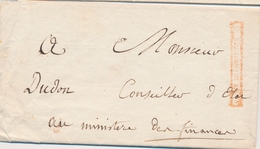 A Monsieur
Dudon Conseiller d'Etat
au ministere des finances